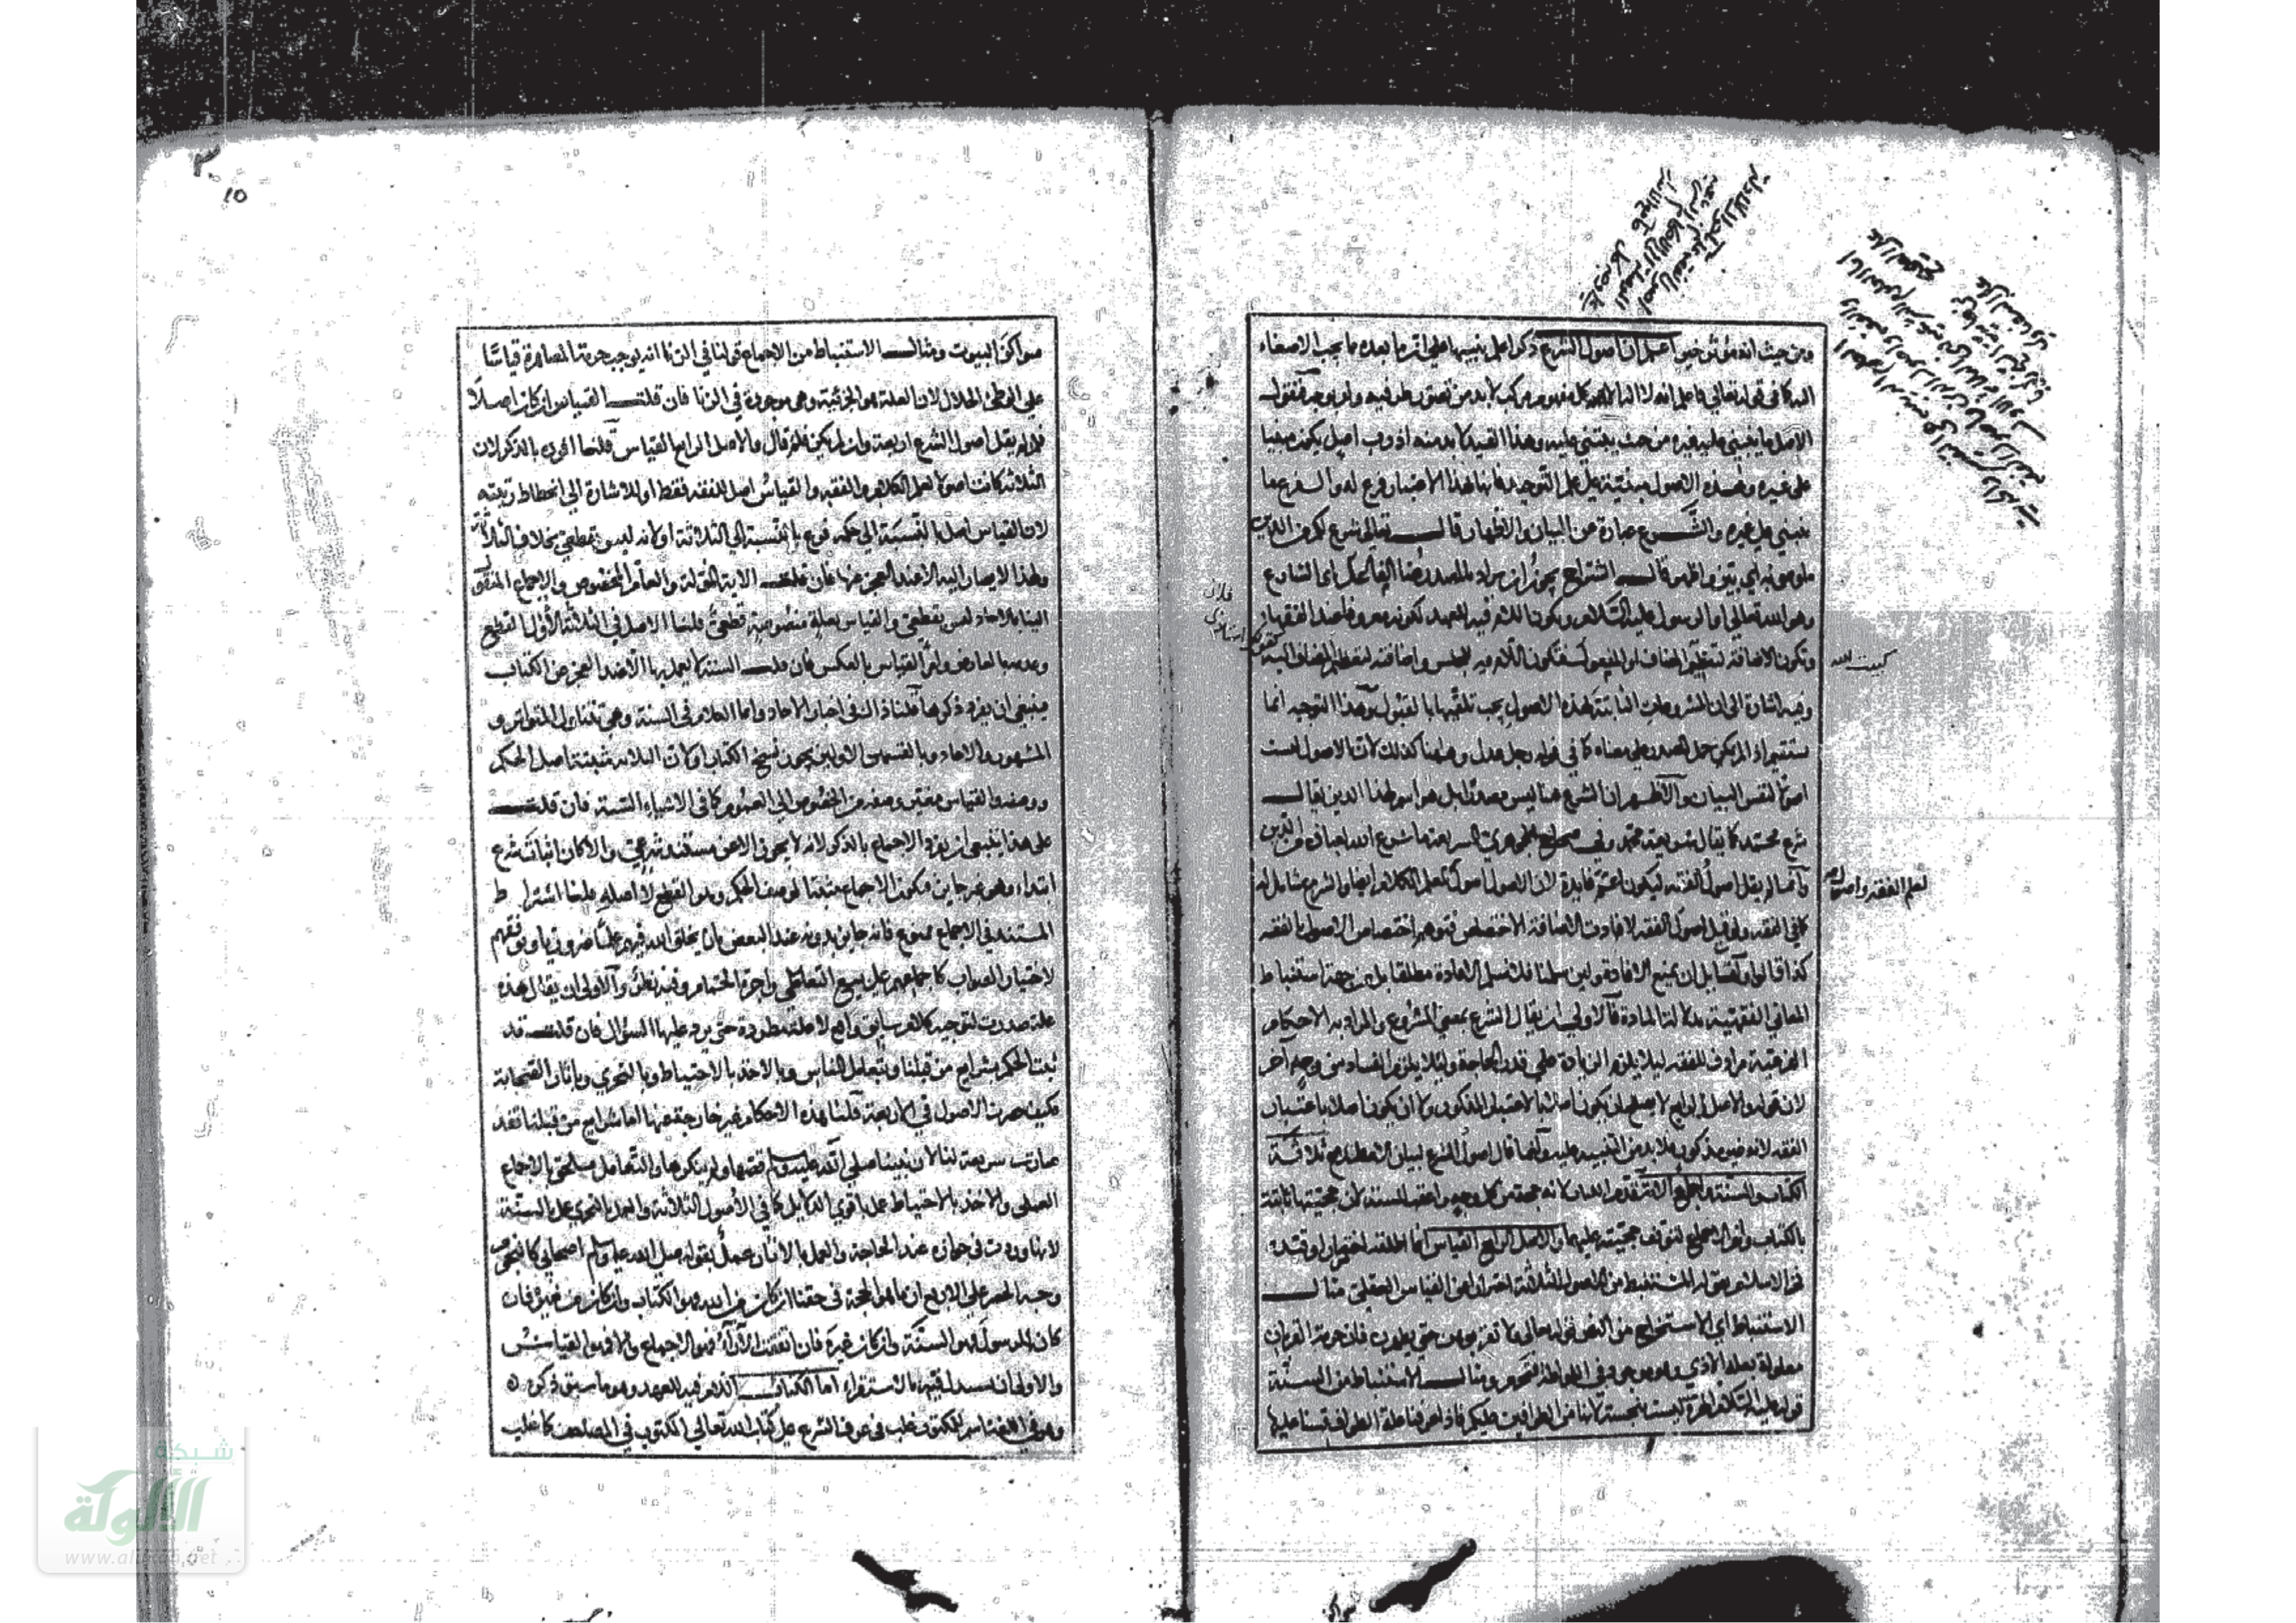 ومن حيث انه مؤثر خير اعلم ان اصول الشرع ذكر اعلم تنبيها على ان ما بعده مما يجب الاصغاء
اليه كما في قوله تعالى فاعلم انه لا اله الا الله كل مفهوم مركب لا بد من تصور طرفيه ولو بوجه فنقول
الاصل ما يبتنى عليه غيره من حيث يبتنى عليه وهذا القيد لا بد منه اذ رب اصل يكون مبنيا
على غيره وهذه الاصول مبنية على علم التوحيد فانها بهذا الاعتبار فرع له والفرع ما
يبتنى على غيره والشرع عبارة عن البيان والاظهار قال تعالى شرع لكم من الدين
ما وصى به اي بين واظهر قال الشراح يجوز ان يراد بالمصدر هنا الفاعل اي الشارع
وهو الله تعالى او الرسول عليه السلام ويكون اللام فيه للعهد لكونه معروفا عند الفقهاء
وتكون الاضافة لتعظيم المضاف او المفعول فتكون اللام فيه للجنس واضافته لتعظيم المضاف اليه
وفيه اشارة الى ان المشروعات الثابتة بهذه الاصول يجب تلقيها بالقبول وهذا التوجيه انما
يستقيم اذا لم يمكن حمل المصدر على معناه كما في قوله رجل عدل وههنا كذلك لان الاصول ليست
اصولا لنفس البيان والاظهر ان الشرع هنا ليس مصدرا بل هو اسم لهذا الدين يقال
شرع محمد كما يقال شريعة محمد وفي صحاح الجوهري الشريعة ما شرع الله لعباده من الدين
وانما لم يقل اصول الفقه ليكون اعم فايدة لان الاصول اصول لعلم الكلام ايضا والشرع شامل له
كما في الفقه ولو قيل اصول الفقه لافادت الاضافة الاختصاص فتوهم اختصاص الاصول بالفقه
كذا قالوا ولقائل ان يمنع الافادة ولئن سلمنا فلا نسلم الافادة مطلقا بل من جهة استنباط
المعاني الفقهية بدلالة المادة فالاولى ان يقال الشرع بمعنى المشروع والمراد به الاحكام
الفرعية مرادف للفقه ليلا يلزم الزيادة على قدر الحاجة ولئلا يلزم الفساد من وجه آخر
لان قوله والاصل الرابع لا يصلح ان يكون اصلا بالاعتبار المذكور ولا ان يكون اصلا باعتبار
الفقه لانه غير مذكور فلا بد من التنبيه عليه وانما قال اصول الشرع لبيان الاصطلاح ثلاثة
الكتاب والسنة واجماع الامة قدم الكتاب لانه حجة من كل وجه واعقبه السنة لان حجيتها ثابتة
بالكتاب واخر الاجماع لتوقف حجيته عليهما والاصل الرابع القياس انما اطلقه اختصارا وقيده
فخر الاسلام بقوله المستنبط من الاصول الثلاثة احترازا عن القياس العقلي مثال
الاستنباط اي الاستخراج من النص قوله تعالى ولا تقربوهن حتى يطهرن فان حرمة القربان
معلولة بعلة الاذى وهو موجود في اللواطة فتحرم ومثال الاستنباط من السنة
قوله عليه السلام الهرة ليست بنجسة لانها من الطوافين عليكم فاذا عرفنا علة الطواف قسنا عليها
كبيت الله
لعلم الفقه واصوله
سواكن البيوت ومثال الاستنباط من الاجماع قولنا في الزنا انه يوجب حرمة المصاهرة قياسا
على الوطئ الحلال لان العلة هو الجزئية وهي موجودة في الزنا فان قلت القياس ان كان اصلا
فلم لم يقل اصول الشرع اربعة وان لم يكن فلم قال والاصل الرابع القياس قلنا افرد بالذكر لان
الثلاثة كانت اصولا لعلم الكلام والفقه والقياس اصل للفقه فقط او للاشارة الى انحطاط رتبته
لان القياس اصل بالنسبة الى حكمه فرع بالنسبة الى الثلاثة او لانه ليس بقطعي بخلاف الثلاثة
ولهذا لا يصار اليه الا عند العجز عنها فان قلت الاية المؤولة والعام المخصوص والاجماع المنقول
الينا بالاحاد ليس بقطعي والقياس بعلة منصوصة قطعي قلنا الاصل في الثلاثة الاول القطع
وعدمه بالعارض وامر القياس بالعكس فان قلت السنة لا يعمل بها الا عند العجز عن الكتاب
فينبغي ان يفرد ذكرها قلنا ذاك في اخبار الاحاد وانما الكلام في السنة وهي تتناول المتواتر و
المشهور والاحاد وبالقسمين الاولين يجوز نسخ الكتاب او لان الثلاثة مثبتة اصل الحكم
ووصفه والقياس مغير وصفه من الخصوص الى العموم كما في الاشياء الستة فان قلت
على هذا ينبغي ان يفرد الاجماع بالذكر لانه لا يجوز الا عن مستند شرعي والا كان اثباته شرع
ابتداء وهو غير جايز فيكون الاجماع مثبتا لوصف الحكم وهو القطع لا اصله قلنا اشتراط
المستند في الاجماع ممنوع فانه جايز بدونه عند البعض بان يخلق الله فيهم علما ضروريا ويوفقهم
لاختيار الصواب كاجماعهم على بيع التعاطي واجرة الحمام وفيه نظر والاولى ان يقال هذه
علة صدرت لتوجيه كلام سابق واقع لا علة مطردة حتى يرد عليها السؤال فان قلت قد
يثبت الحكم بشرايع من قبلنا وبتعامل الناس وبالاخذ بالاحتياط وبالتحري وباثار الصحابة
فكيف حصرت الاصول في الاربعة قلنا هذه الاحكام غير خارجة عنها اما شرايع من قبلنا فقد
صارت شريعة لنا لان نبينا صلى الله عليه وسلم قصها ولم ينكرها والتعامل ملحق بالاجماع
العملي والاخذ بالاحتياط عمل باقوى الدلايل كما في الاصول الثلاثة والعمل بالتحري عمل بالسنة
لانها وردت في جوازه عند الحاجة والعمل بالاثار عمل بقوله صلى الله عليه وسلم اصحابي كالنجوم
وجه الحصر على الاربع ان ما هو الحجة في حقنا ان كان من الله فهو الكتاب وان كان من غيره فان
كان الرسول فهو السنة وان كان غيره فان اتفقت الآراء فهو الاجماع والا فهو القياس
والاولى ان يستدل فيها بالاستقراء اما الكتاب اللام فيه للعهد وهو ما سبق ذكره
وهو في اللغة اسم للمكتوب غلب في عرف الشرع على كتاب الله تعالى المكتوب في المصاحف كما غلب
١٥
شبكة
الألوكة
www.alukah.net